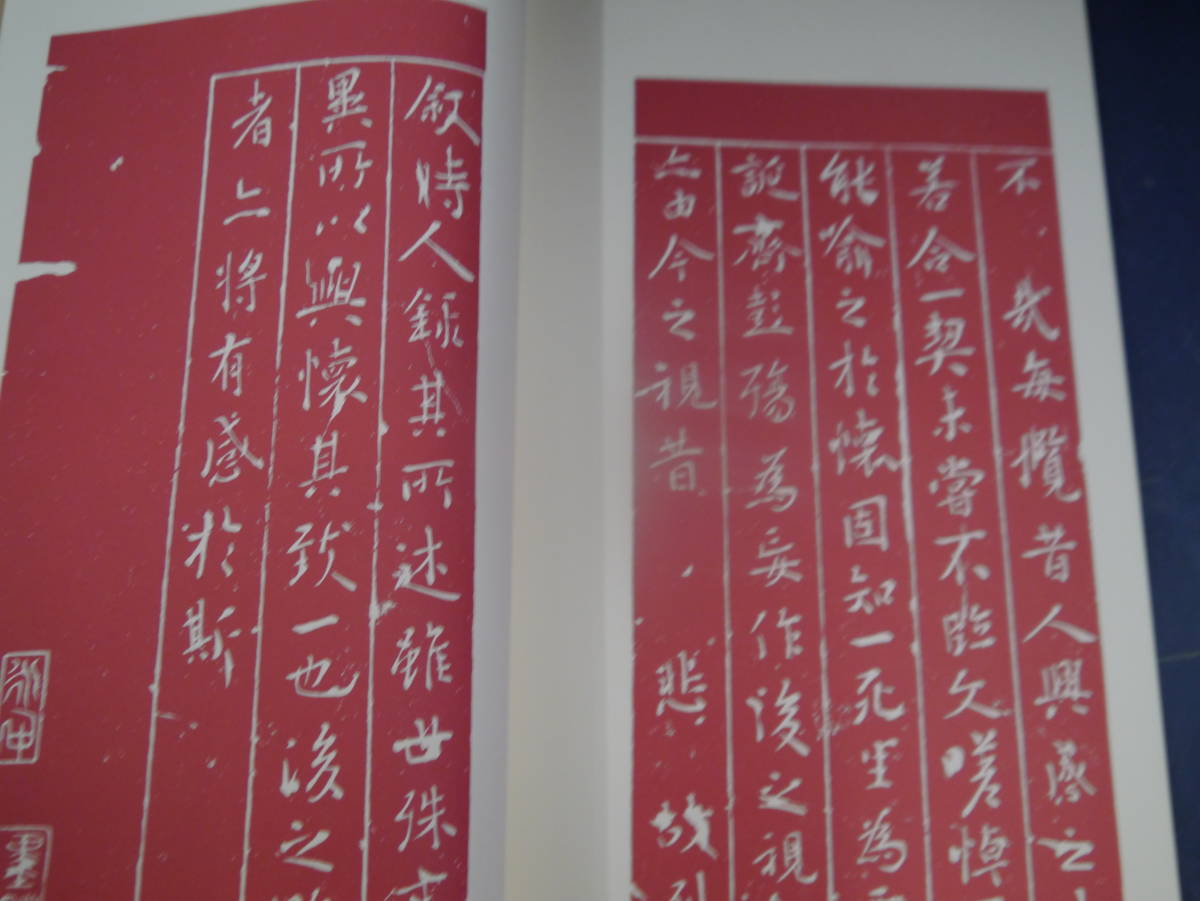 不 哉每攬昔人興感之
若合一契未嘗不臨文嗟悼
能喻之於懷固知一死生為
誕齊彭殤為妄作後之視
亦由今之視昔 悲 故列
叙時人錄其所述雖世殊
異所以興懷其致一也後之
者亦將有感於斯
永仲